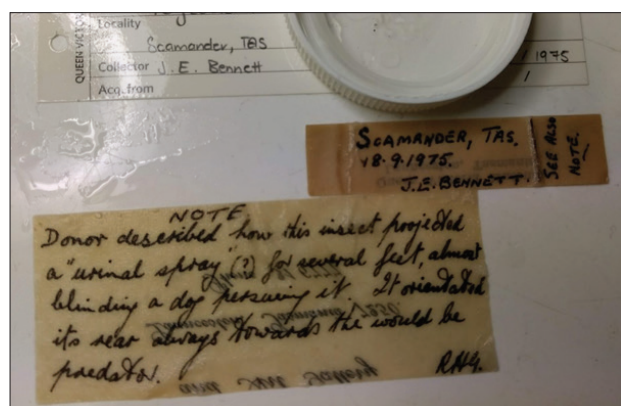 Locality
Scamander, TAS
QUEEN VICTOR
Collector J. E. Bennett
/ 1975
Acq. from
/
SCAMANDER, TAS.
18.9.1975.
J.E. BENNETT.
SEE ALSO
NOTE.
NOTE
Donor described how this insect projected
a "urinal spray" (?) for several feet, almost
blinding a dog persuing it. It orientated
its rear always towards the would be
predator.
RHG.
and Art Gallery